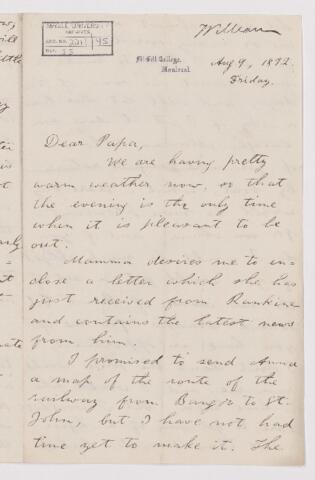 William
McGill College,
Montreal.
Aug 9, 1872.
Friday.
Dear Papa,
We are having pretty
warm weather now, so that
the evening is the only time
when it is pleasant to be
out.
Mamma desires me to en-
close a letter which she has
just received from Rankine
and contains the latest news
from him.
I promised to send Anna
a map of the route of the
railway from Bangor to St.
John, but I have not had
time yet to make it. The